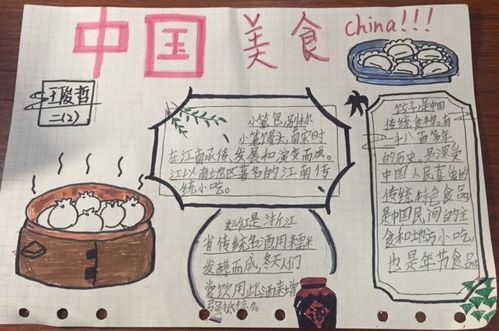 中国美食 china!!!
王骏哲
二(2)
小笼包,别称
小笼馒头,
在江南承传、发展和演变而成。
江以南地区著名的江南传
统小吃。
是浙江
省传统名酒用糯米
发酵而成,冬天人们
常饮用此酒来增
饺子是中国
传统食物,有一
千八百多年
的历史,是深受
中国人民喜爱的
传统特色食品
是中国民间的主
食和地方小吃
也是年节食品
酒